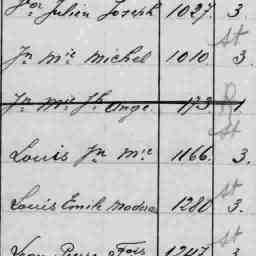 Julien Joseph 1027. 3.
st
Jn Mie Michel 1010. 3
Jn Mie Jh Ange. 173. 1
st
Louis Jn Mie 1166. 3.
st
Louis Emile 1280 3.
st
Pierre Fois 1247. 3.